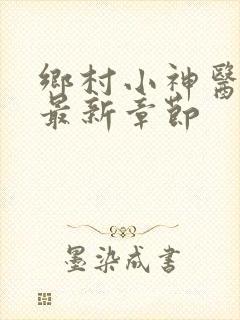 鄉村小神醫
最新章節
墨染成書